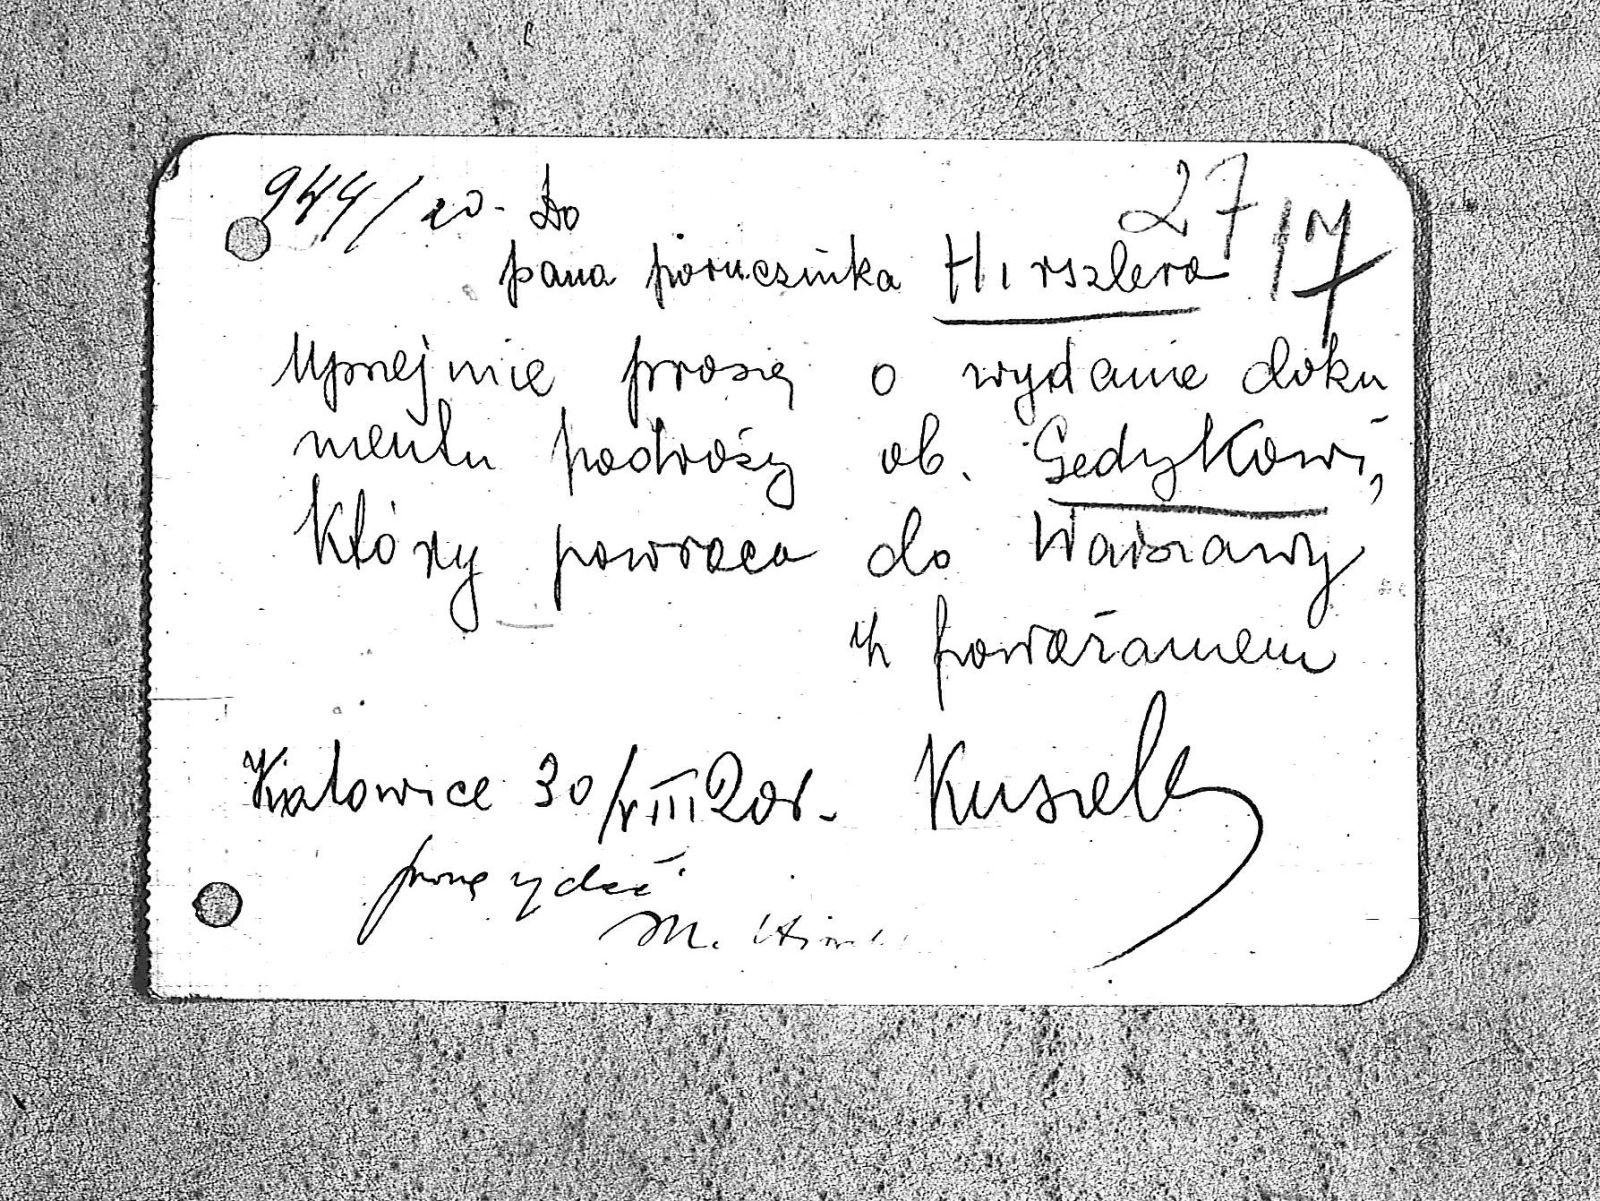 944/20. Do
27 IV
pana porucznika Hirszlera
Uprzejmie proszę o wydanie doku
mentu podróży ob. Gedykowi,
który powraca do Warszawy
z poważaniem
Katowice 30/VIII 20r. Kuszel
proszę wydać
M.